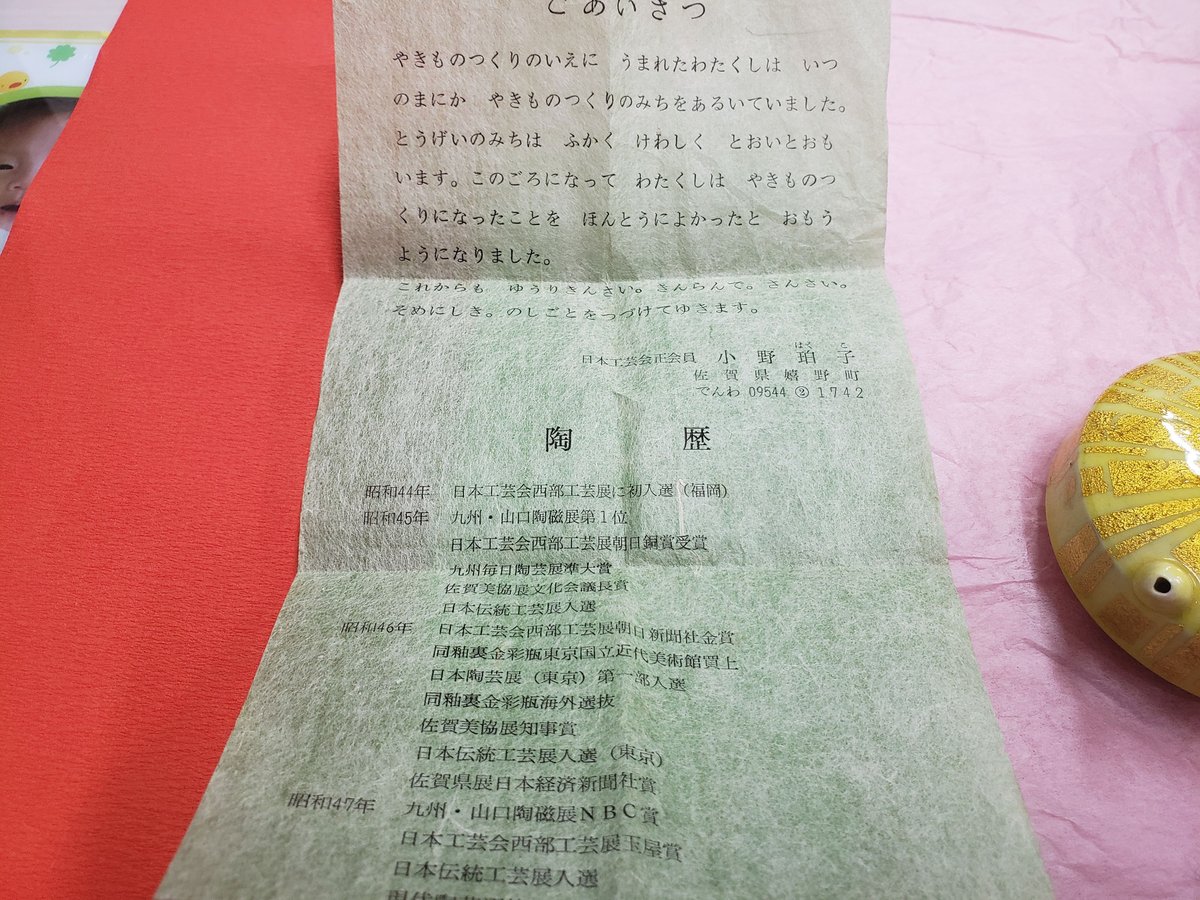 ごあいさつ
やきものつくりのいえに　うまれたわたくしは　いつ
のまにか　やきものつくりのみちをあるいていました。
とうげいのみちは　ふかく　けわしく　とおいとおも
います。このごろになって　わたくしは　やきものつ
くりになったことを　ほんとうによかったと　おもう
ようになりました。
これからも　ゆうりきんさい。きんらんで。さんさい。
そめにしき。のしごとをつづけてゆきます。
はく　こ
日本工芸会正会員　小野珀子
佐賀県嬉野町
でんわ 09544 ② 1742
陶歴
昭和44年　日本工芸会西部工芸展に初入選（福岡）
昭和45年　九州・山口陶磁展第1位
日本工芸会西部工芸展朝日銅賞受賞
九州毎日陶芸展準大賞
佐賀美協展文化会議長賞
日本伝統工芸展入選
昭和46年　日本工芸会西部工芸展朝日新聞社金賞
同釉裏金彩瓶東京国立近代美術館買上
日本陶芸展（東京）第一部入選
同釉裏金彩瓶海外選抜
佐賀美協展知事賞
日本伝統工芸展入選（東京）
佐賀県展日本経済新聞社賞
昭和47年　九州・山口陶磁展NBC賞
日本工芸会西部工芸展玉屋賞
日本伝統工芸展入選